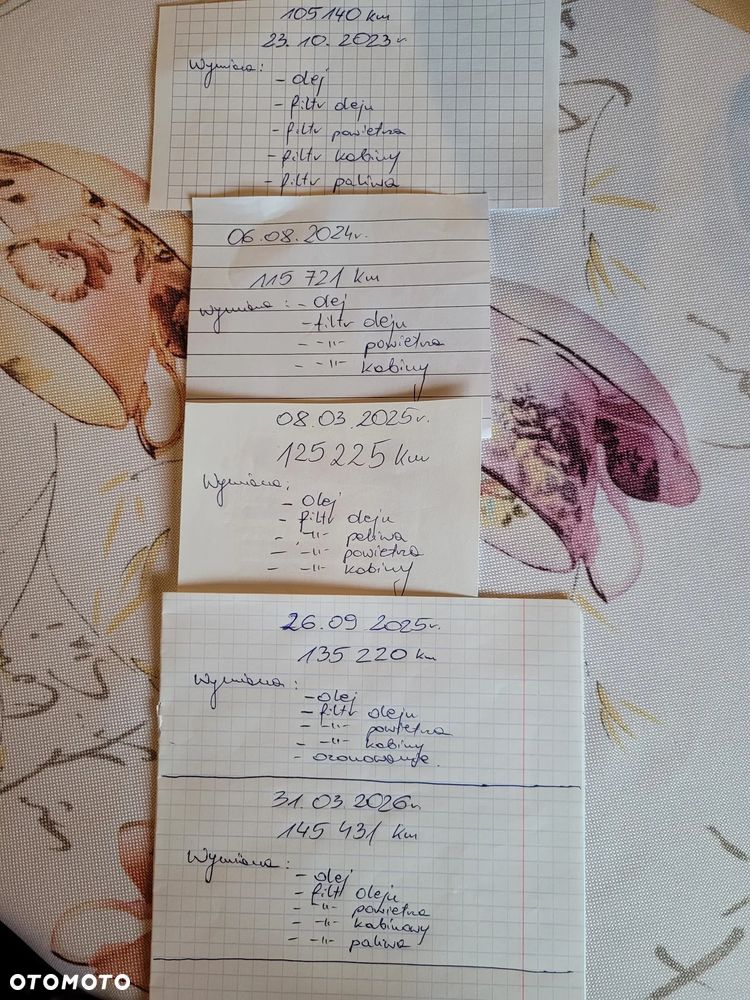 105 140 km
23. 10. 2023r
Wymiana:
- olej
- filtr oleju
- filtr powietrza
- filtr kabiny
- filtr paliwa
06.08.2024r.
115 721 km
Wymiana: - olej
- filtr oleju
- -"- powietrza
- -"- kabiny
08.03.2025r.
125 225 km
Wymiana:
- olej
- filtr oleju
- -"- paliwa
- -"- powietrza
- -"- kabiny
26.09.2025r.
135 220 km
Wymiana:
- olej
- filtr oleju
- -"- powietrza
- -"- kabiny
- ozonowanie.
31.03.2026r
145 431 km
Wymiana:
- olej
- filtr oleju
- -"- powietrza
- -"- kabinowy
- -"- paliwa
OTOMOTO